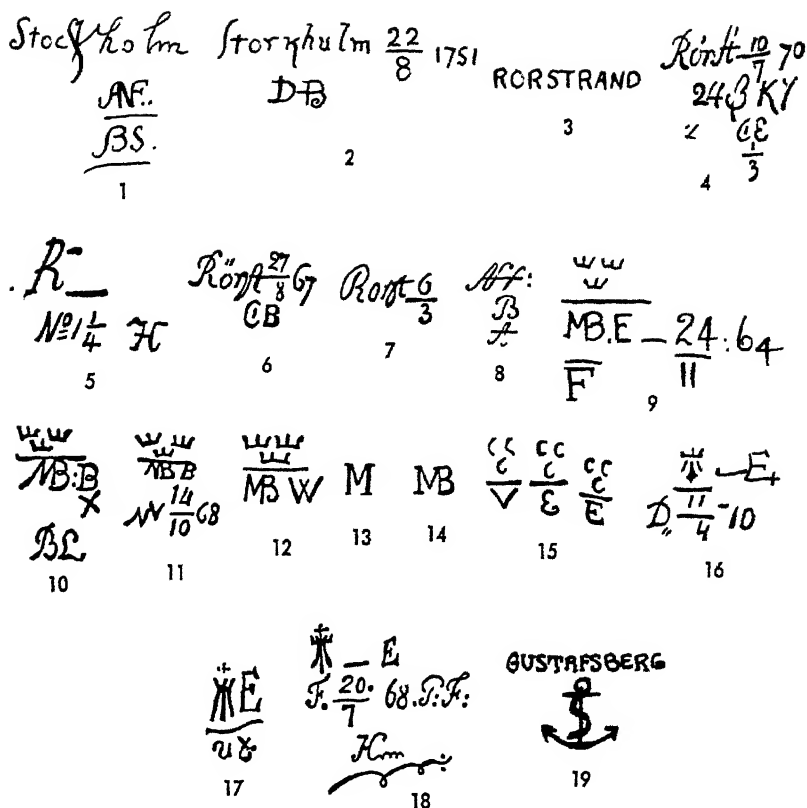 Stockholm
ANF..
BS.
1
Storkhulm 22/8 1751
DB
2
RORSTRAND
3
Rörst 10/7 70
24 β KY
CE
1/3
4
R
No 1 1/4 H
5
Rörst 27/8 67
CB
6
Rorst 6/3
7
Aff:
B
A.
8
MB.E — 24/11 : 64
F
9
MB:B
X
BL
10
MB B
14/10 68
11
MB W
12
M
13
MB
14
C C C V
C C C E
C C C E
15
E
D,, 11/4 - 10
16
E
17
E
F. 20./7 68. P: F:
Hm
18
GUSTAFSBERG
19